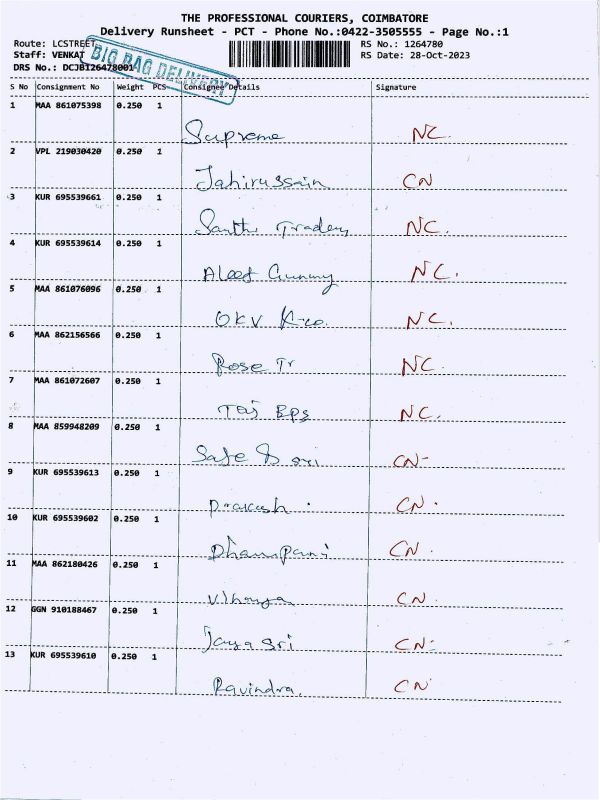 THE PROFESSIONAL COURIERS, COIMBATORE
Delivery Runsheet - PCT - Phone No.:0422-3505555 - Page No.:1
Route: LCSTREET
RS No.: 1264780
Staff: VENKAT
RS Date: 28-Oct-2023
DRS No.: DCJB126478001
BIG BAG DELIVERY
S No Consignment No Weight PCS Consignee Details Signature
1 MAA 861075398 0.250 1
Supreme NC.
2 VPL 219030420 0.250 1
Jahirussain CN
3 KUR 695539661 0.250 1
Santhi Traders NC.
4 KUR 695539614 0.250 1
Aleef Gunny NC.
5 MAA 861076096 0.250 1
OKV & co. NC.
6 MAA 862156566 0.250 1
Rose Tr NC.
7 MAA 861072607 0.250 1
Taj Bps NC.
8 MAA 859948209 0.250 1
Safe CN-
9 KUR 695539613 0.250 1
Prakash . CN .
10 KUR 695539602 0.250 1
CN .
11 MAA 862180426 0.250 1
CN .
12 GGN 910188467 0.250 1
Jaya Sri CN-
13 KUR 695539610 0.250 1
Ravindra. CN